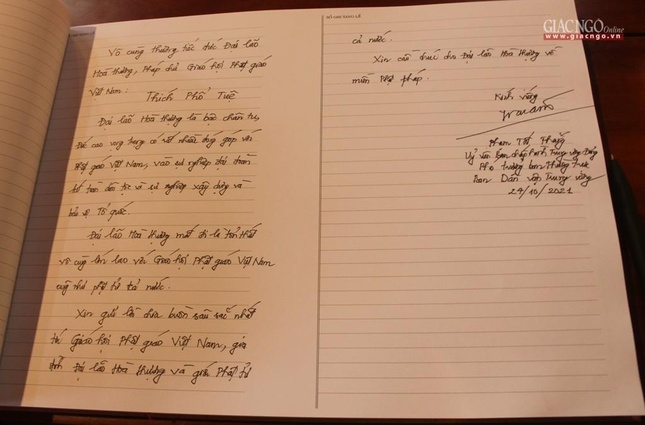 GIACNGO Online
www.giacngo.vn
SỔ GHI TANG LỄ
Vô cùng thương tiếc đức Đại lão
Hoà thượng, Pháp chủ Giáo hội Phật giáo
Việt Nam:
Thích Phổ Tuệ
Đại lão Hoà thượng là bậc chân tu,
đề cao vọng trọng có rất nhiều đóng góp với
Phật giáo Việt Nam, vào sự nghiệp đại đoàn
kết toàn dân tộc vì sự nghiệp xây dựng và
bảo vệ Tổ quốc.
Đại lão Hoà thượng mất đi là tổn thất
vô cùng lớn lao với Giáo hội Phật giáo Việt Nam
cũng như phật tử cả nước.
Xin gửi lời chia buồn sâu sắc nhất
tới Giáo hội Phật giáo Việt Nam, gia
đình Đại lão Hoà thượng và giới Phật tử
cả nước.
Xin cầu chúc cho Đại lão Hoà thượng về
miền Phật pháp.
Kính viếng
Phan Tất Thắng
Uỷ viên ban chấp hành Trung ương Đảng
Phó trưởng ban Thường trực
Ban Dân vận Trung ương
24/10/2021